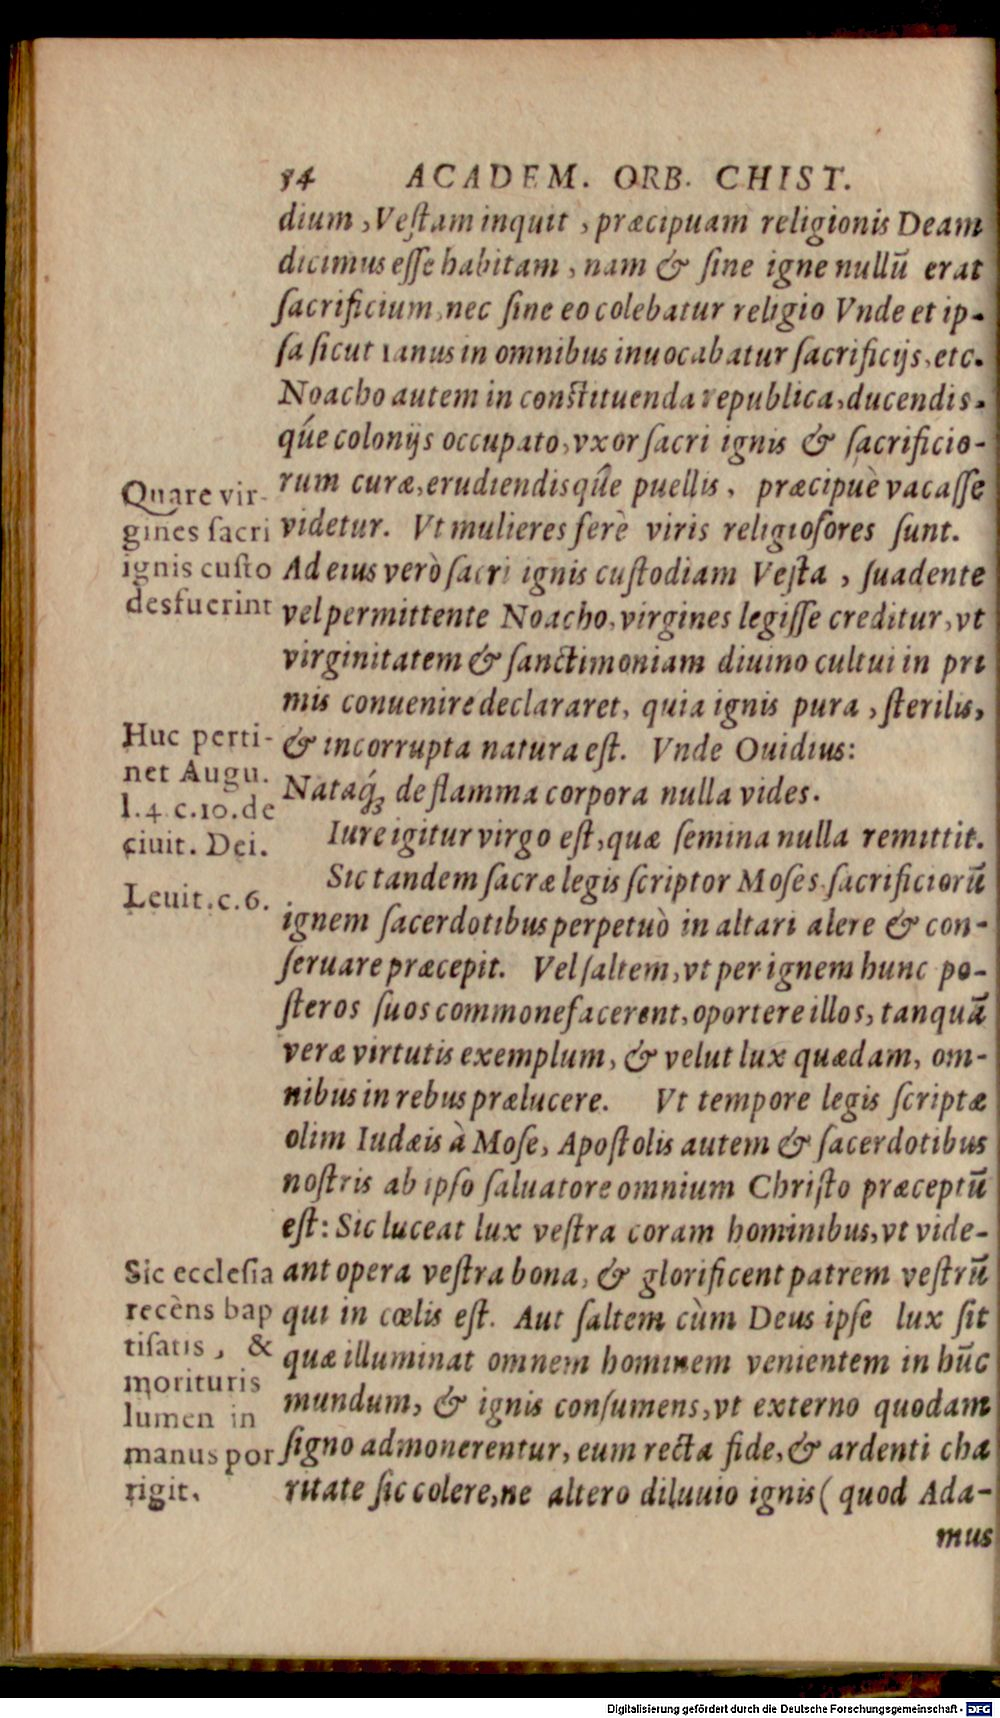 84 ACADEM. ORB. CHIST.
dium, Veſtam inquit, præcipuam religionis Deam
dicimus eſſe habitam, nam & ſine igne nullũ erat
ſacrificium, nec ſine eo colebatur religio Vnde et ip-
ſa ſicut Ianus in omnibus inuocabatur ſacrificijs, etc.
Noacho autem in conſtituenda republica, ducendis-
qúe colonijs occupato, vxor ſacri ignis & ſacrificio-
rum curæ, erudiendisqúe puellis, præcipuè vacaſſe
videtur. Vt mulieres ferè viris religioſores ſunt.
Ad eius verò ſacri ignis cuſtodiam Veſta, ſuadente
vel permittente Noacho, virgines legiſſe creditur, vt
virginitatem & ſanctimoniam diuino cultui in pri
mis conuenire declararet, quia ignis pura, ſterilis,
& incorrupta natura eſt. Vnde Ouidius:
Nataq́; de flamma corpora nulla vides.
Iure igitur virgo eſt, quæ ſemina nulla remittit.
Sic tandem ſacræ legis ſcriptor Moſes, ſacrificiorũ
ignem ſacerdotibus perpetuò in altari alere & con-
ſeruare præcepit. Vel ſaltem, vt per ignem hunc po-
ſteros ſuos commonefacerent, oportere illos, tanquã
veræ virtutis exemplum, & velut lux quædam, om-
nibus in rebus prælucere. Vt tempore legis ſcriptæ
olim Iudæis à Moſe, Apoſtolis autem & ſacerdotibus
noſtris ab ipſo ſaluatore omnium Chriſto præceptũ
eſt: Sic luceat lux veſtra coram hominibus, vt vide-
ant opera veſtra bona, & glorificent patrem veſtrũ
qui in cœlis eſt. Aut ſaltem cùm Deus ipſe lux ſit
quæ illuminat omnem hominem venientem in hũc
mundum, & ignis conſumens, vt externo quodam
ſigno admonerentur, eum recta fide, & ardenti cha
ritate ſic colere, ne altero diluuio ignis (quod Ada-
mus
Quare vir-
gines ſacri
ignis cuſto
desfuerint
Huc perti-
net Augu.
l.4. c.10. de
ciuit. Dei.
Leuit. c. 6.
Sic eccleſia
recèns bap
tiſatis, &
morituris
lumen in
manus por
rigit.
Digitalisierung gefördert durch die Deutsche Forschungsgemeinschaft - DFG